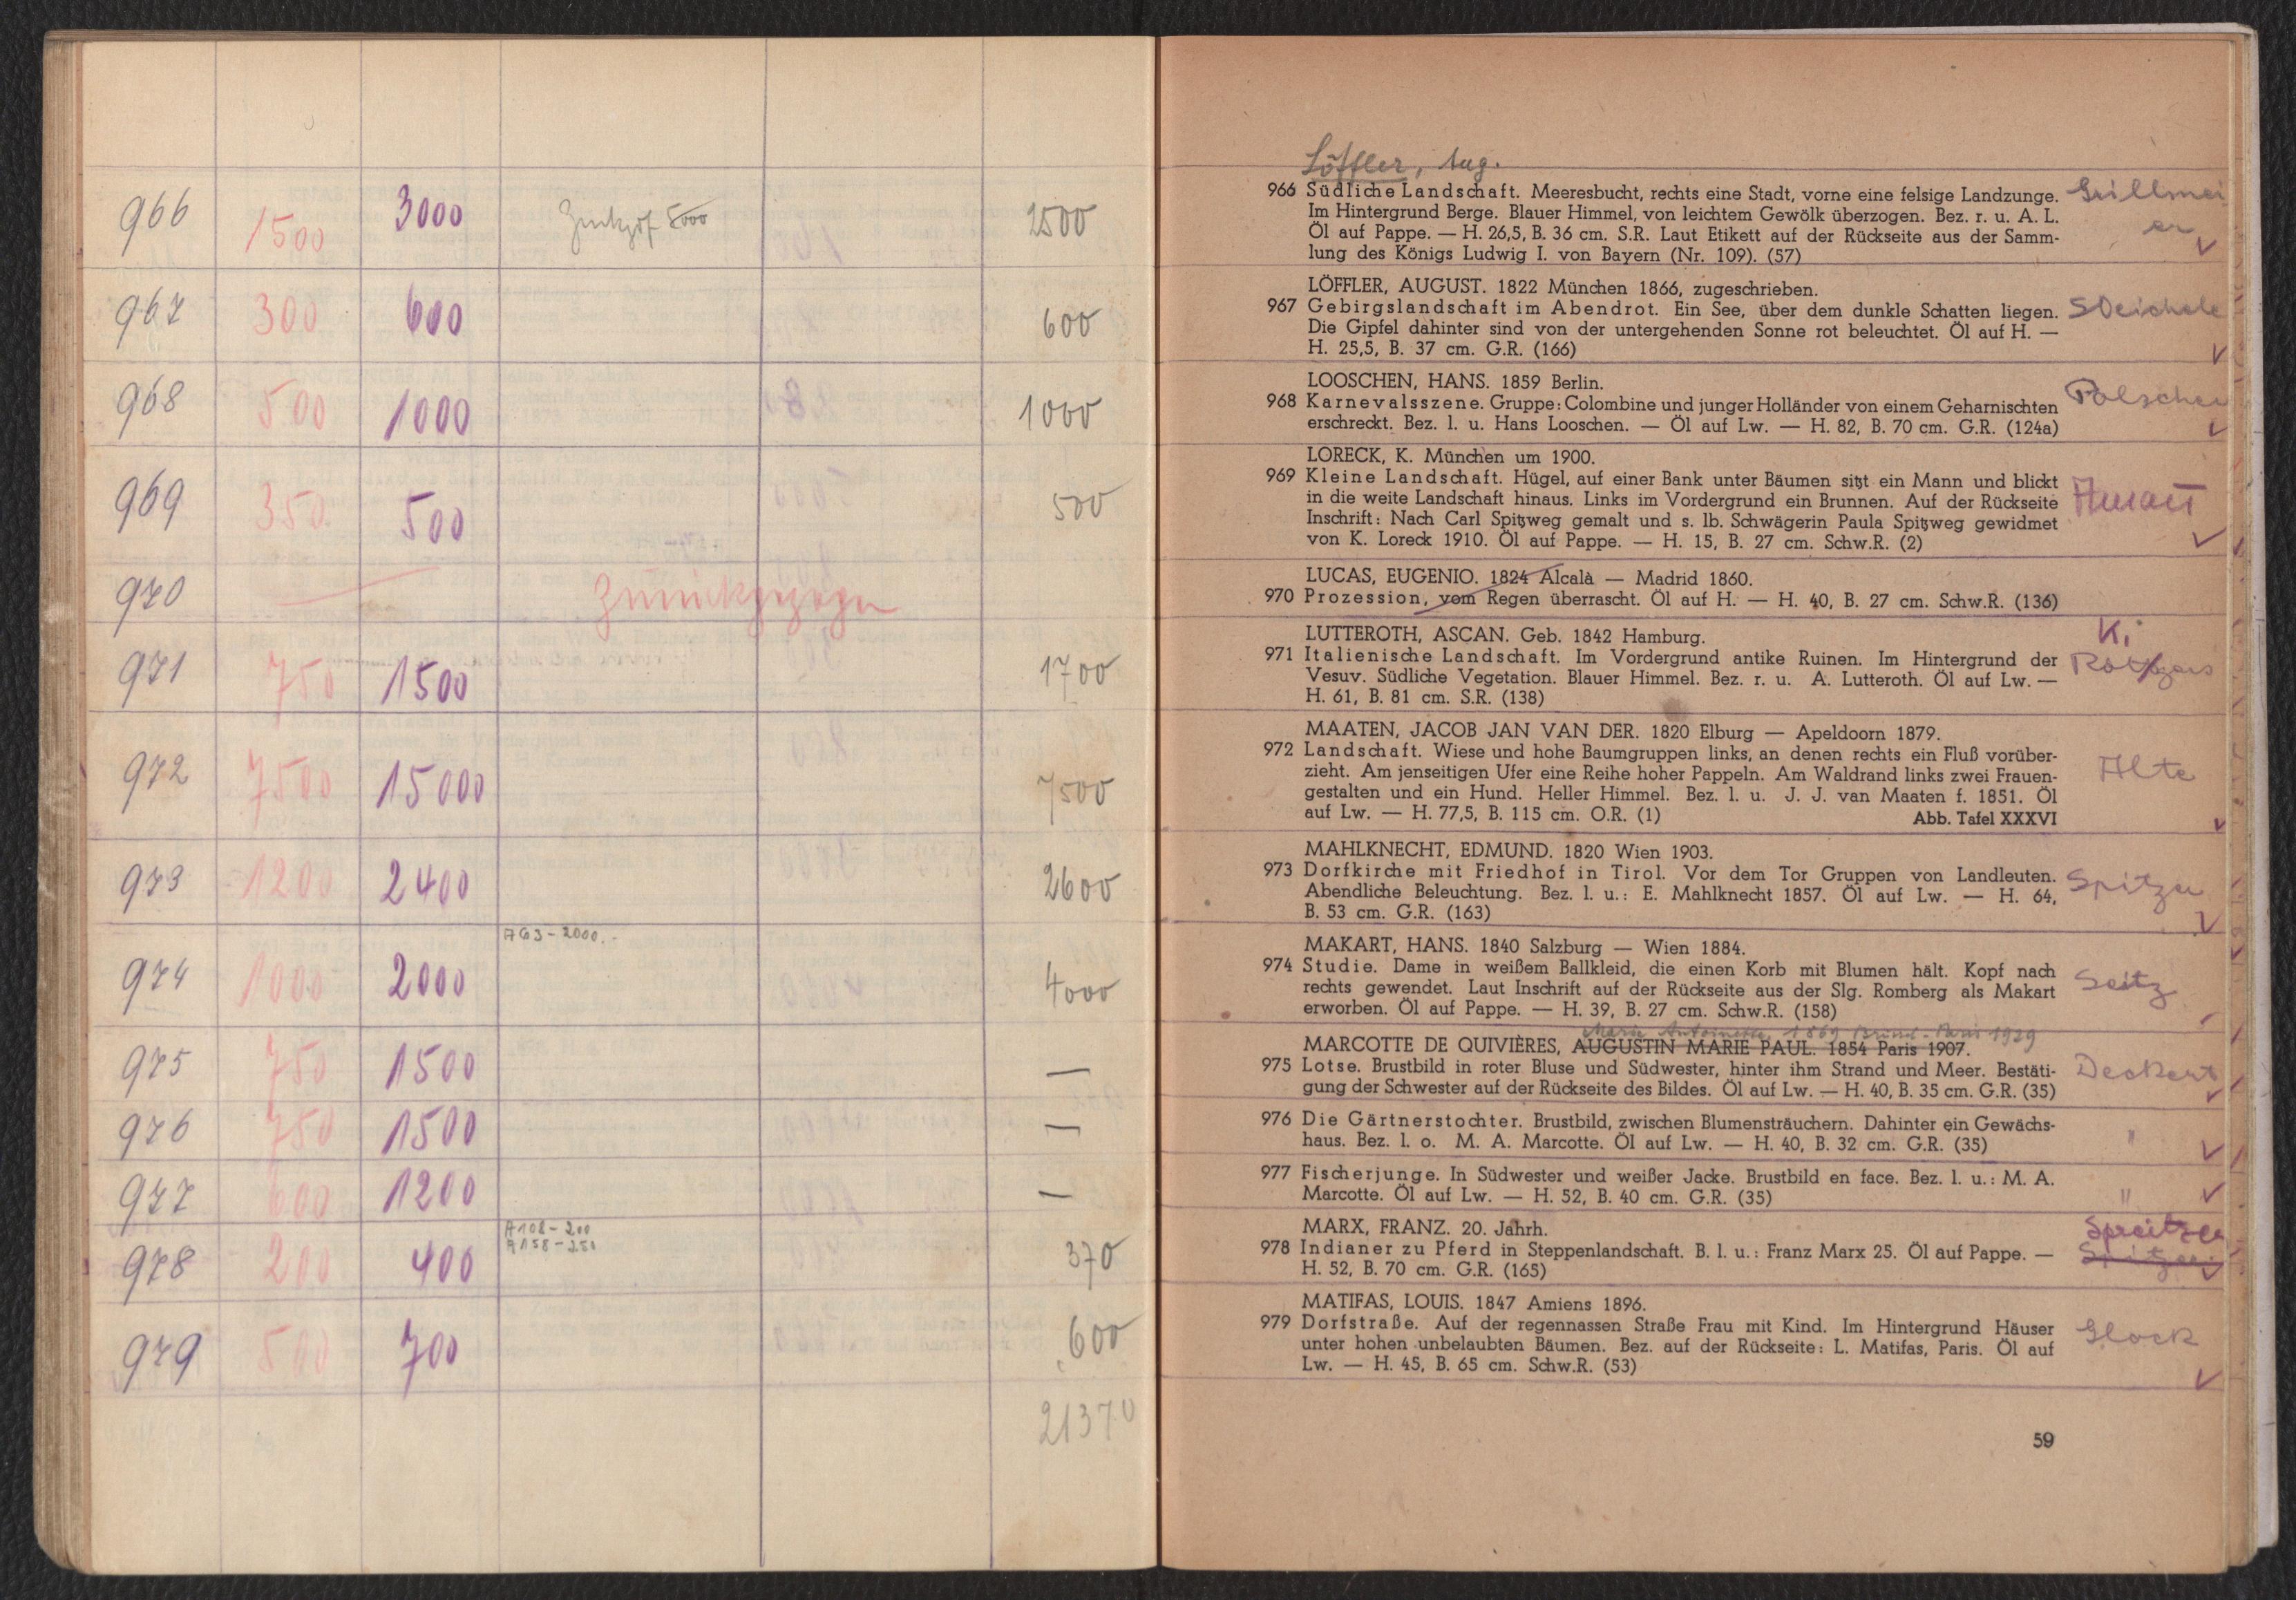 966 1500 3000 5000 2500
967 300 600 600
968 500 1000 1000
969 350 500 500
970 — zurückgezogen
971 750 1500 1700
972 7500 15000 7500
973 1200 2400 2600
A63 – 2000.-
974 1000 2000 4000
975 750 1500 —
976 750 1500 —
977 600 1200 —
A108 – 200
A158 – 250
978 200 400 370
979 500 700 600
21370
Löffler, Aug.
966 Südliche Landschaft. Meeresbucht, rechts eine Stadt, vorne eine felsige Landzunge. Grillmei
Im Hintergrund Berge. Blauer Himmel, von leichtem Gewölk überzogen. Bez. r. u. A. L. er
Öl auf Pappe. — H. 26,5, B. 36 cm. S.R. Laut Etikett auf der Rückseite aus der Samm-
lung des Königs Ludwig I. von Bayern (Nr. 109). (57)
LÖFFLER, AUGUST. 1822 München 1866, zugeschrieben.
967 Gebirgslandschaft im Abendrot. Ein See, über dem dunkle Schatten liegen.
Die Gipfel dahinter sind von der untergehenden Sonne rot beleuchtet. Öl auf H. —
H. 25,5, B. 37 cm. G.R. (166)
LOOSCHEN, HANS. 1859 Berlin.
968 Karnevalsszene. Gruppe: Colombine und junger Holländer von einem Geharnischten
erschreckt. Bez. l. u. Hans Looschen. — Öl auf Lw. — H. 82, B. 70 cm. G.R. (124a)
LORECK, K. München um 1900.
969 Kleine Landschaft. Hügel, auf einer Bank unter Bäumen sitzt ein Mann und blickt
in die weite Landschaft hinaus. Links im Vordergrund ein Brunnen. Auf der Rückseite
Inschrift: Nach Carl Spitzweg gemalt und s. lb. Schwägerin Paula Spitzweg gewidmet
von K. Loreck 1910. Öl auf Pappe. — H. 15, B. 27 cm. Schw.R. (2)
LUCAS, EUGENIO. 1824 Alcalà — Madrid 1860.
970 Prozession, vom Regen überrascht. Öl auf H. — H. 40, B. 27 cm. Schw.R. (136)
LUTTEROTH, ASCAN. Geb. 1842 Hamburg. Ki
971 Italienische Landschaft. Im Vordergrund antike Ruinen. Im Hintergrund der
Vesuv. Südliche Vegetation. Blauer Himmel. Bez. r. u. A. Lutteroth. Öl auf Lw. —
H. 61, B. 81 cm. S.R. (138)
MAATEN, JACOB JAN VAN DER. 1820 Elburg — Apeldoorn 1879.
972 Landschaft. Wiese und hohe Baumgruppen links, an denen rechts ein Fluß vorüber-
zieht. Am jenseitigen Ufer eine Reihe hoher Pappeln. Am Waldrand links zwei Frauen- Alte
gestalten und ein Hund. Heller Himmel. Bez. l. u. J. J. van Maaten f. 1851. Öl
auf Lw. — H. 77,5, B. 115 cm. O.R. (1) Abb. Tafel XXXVI
MAHLKNECHT, EDMUND. 1820 Wien 1903.
973 Dorfkirche mit Friedhof in Tirol. Vor dem Tor Gruppen von Landleuten.
Abendliche Beleuchtung. Bez. l. u.: E. Mahlknecht 1857. Öl auf Lw. — H. 64,
B. 53 cm. G.R. (163)
MAKART, HANS. 1840 Salzburg — Wien 1884.
974 Studie. Dame in weißem Ballkleid, die einen Korb mit Blumen hält. Kopf nach Seitz
rechts gewendet. Laut Inschrift auf der Rückseite aus der Slg. Romberg als Makart
erworben. Öl auf Pappe. — H. 39, B. 27 cm. Schw.R. (158)
Marie Antoinette 1869 - Paris 1929
MARCOTTE DE QUIVIÈRES, AUGUSTIN MARIE PAUL. 1854 Paris 1907.
975 Lotse. Brustbild in roter Bluse und Südwester, hinter ihm Strand und Meer. Bestäti- Deckert
gung der Schwester auf der Rückseite des Bildes. Öl auf Lw. — H. 40, B. 35 cm. G.R. (35)
976 Die Gärtnerstochter. Brustbild, zwischen Blumensträuchern. Dahinter ein Gewächs-
haus. Bez. l. o. M. A. Marcotte. Öl auf Lw. — H. 40, B. 32 cm. G.R. (35) "
977 Fischerjunge. In Südwester und weißer Jacke. Brustbild en face. Bez. l. u.: M. A.
Marcotte. Öl auf Lw. — H. 52, B. 40 cm. G.R. (35) "
MARX, FRANZ. 20. Jahrh. Spreitzer
978 Indianer zu Pferd in Steppenlandschaft. B. l. u.: Franz Marx 25. Öl auf Pappe. —
H. 52, B. 70 cm. G.R. (165)
MATIFAS, LOUIS. 1847 Amiens 1896.
979 Dorfstraße. Auf der regennassen Straße Frau mit Kind. Im Hintergrund Häuser Glock
unter hohen unbelaubten Bäumen. Bez. auf der Rückseite: L. Matifas, Paris. Öl auf
Lw. — H. 45, B. 65 cm. Schw.R. (53)
59